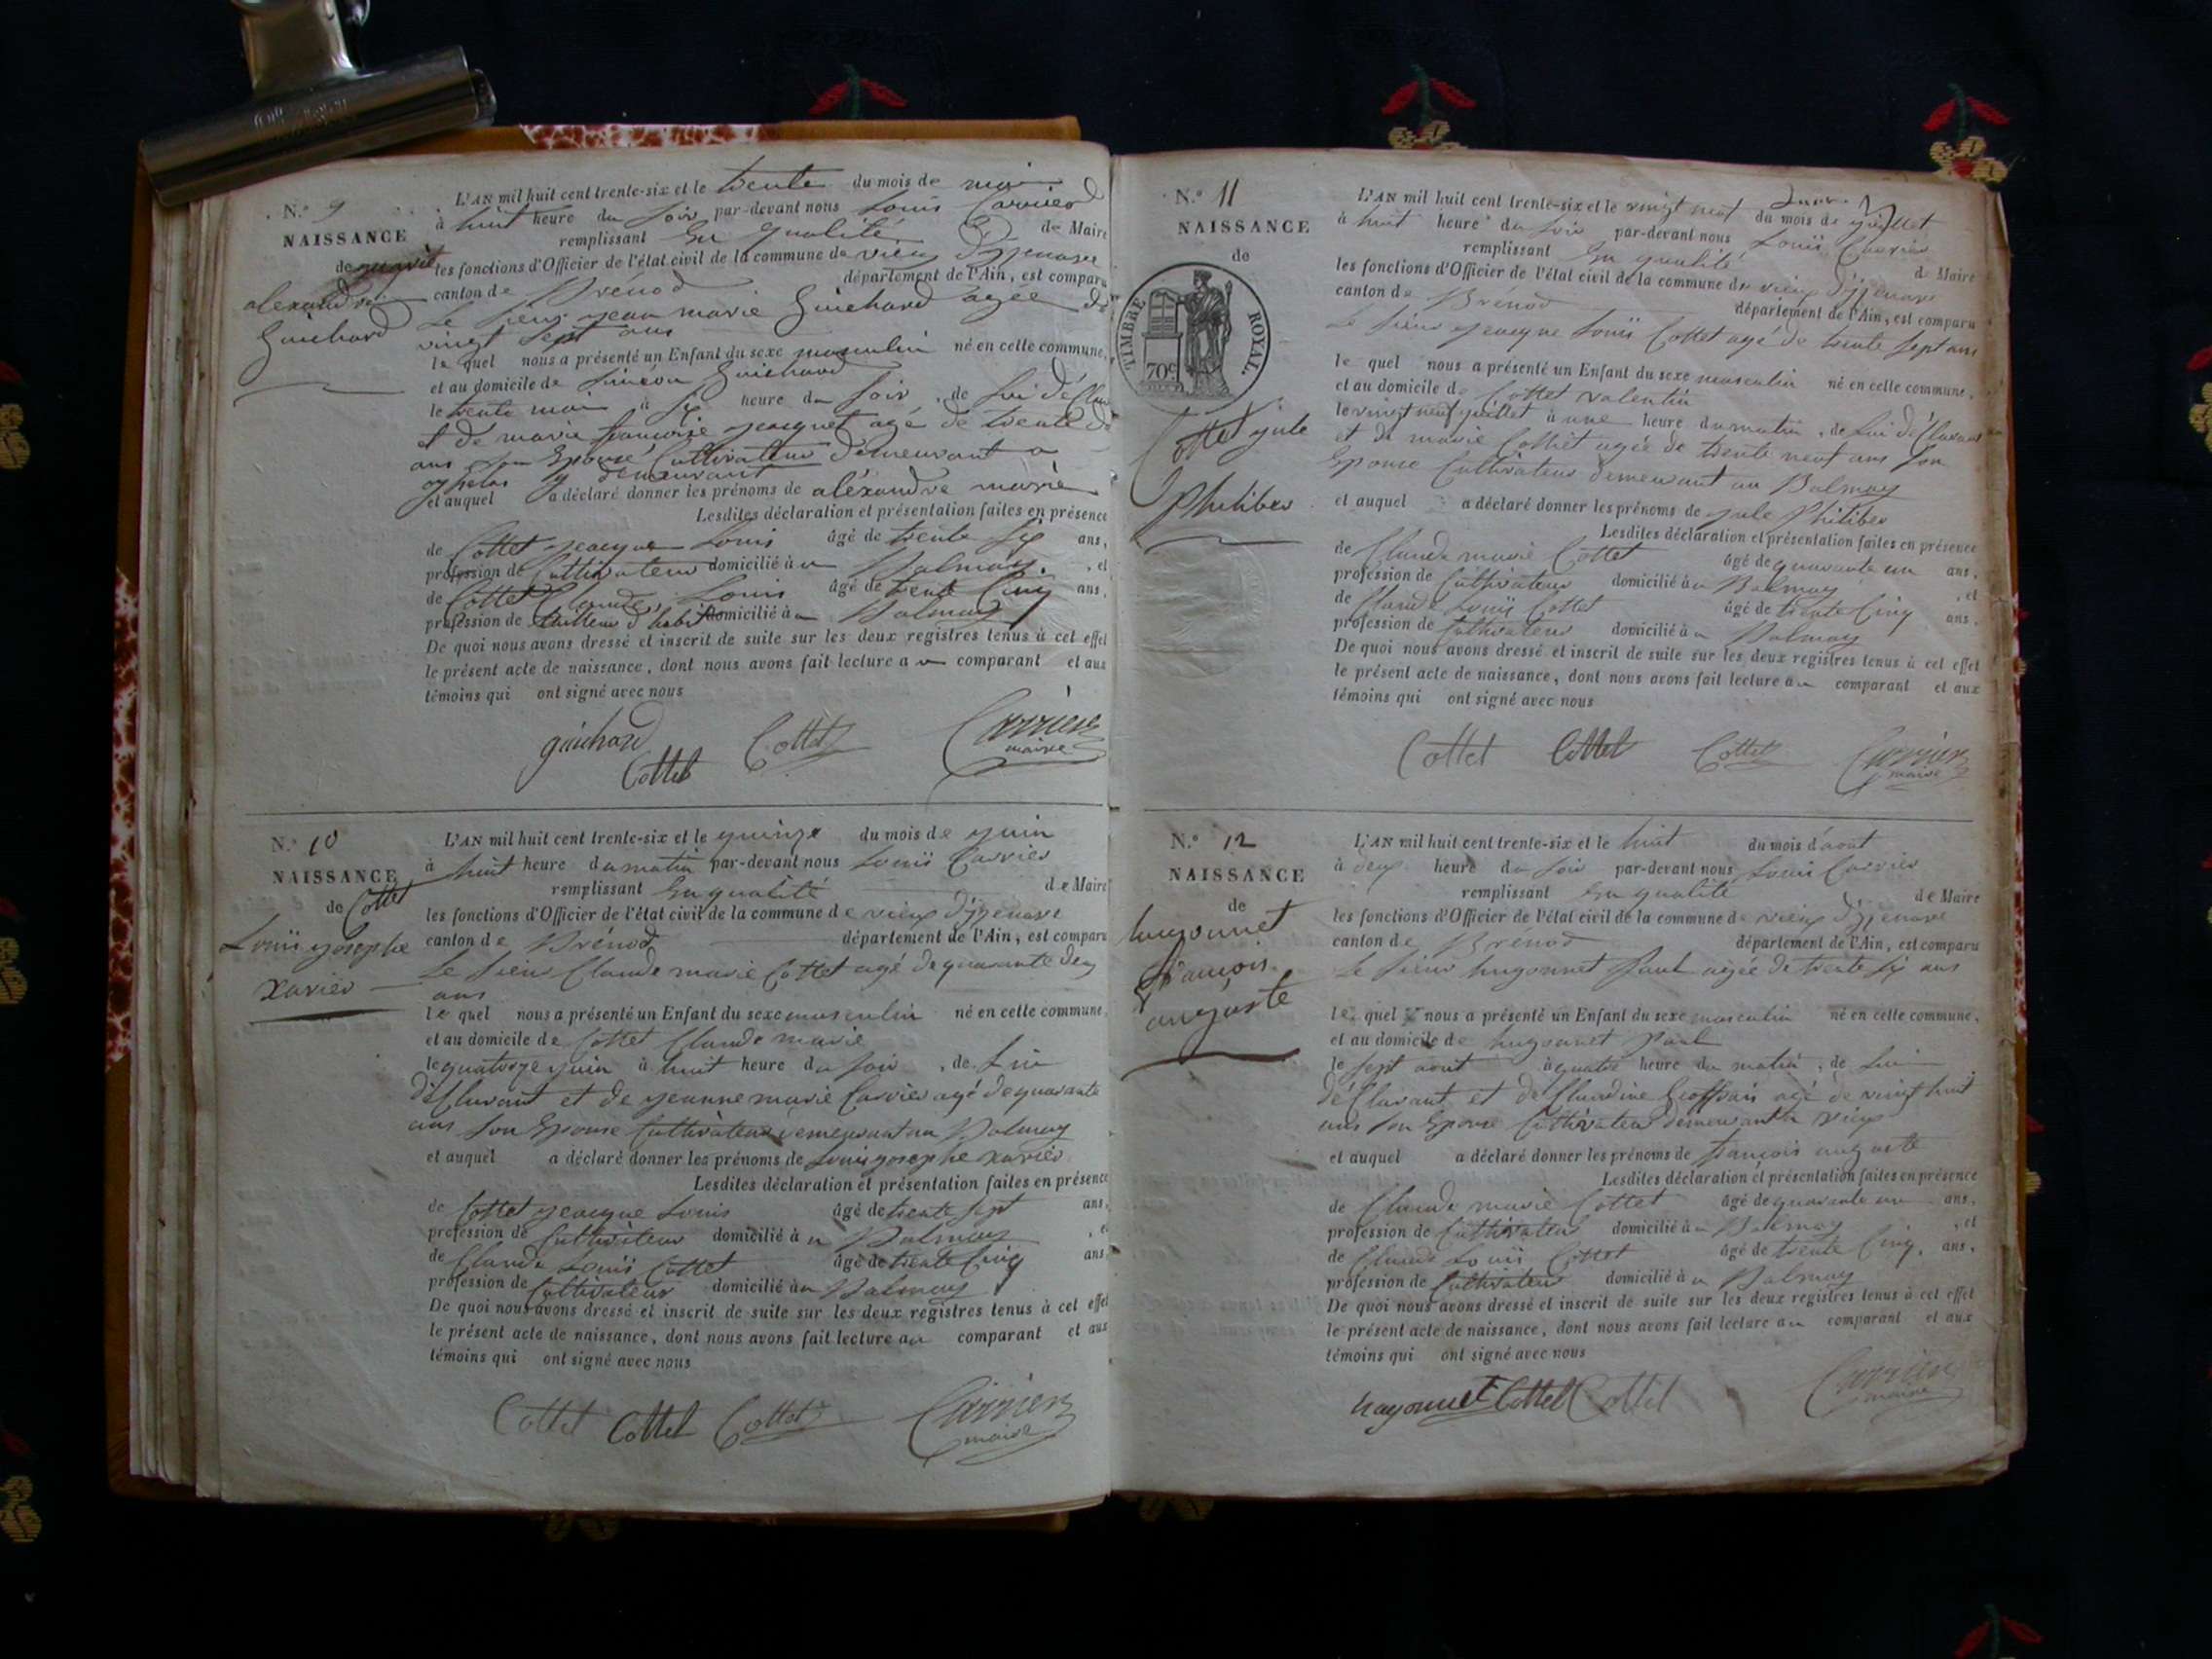 N.° 9
NAISSANCE
de marie
alexandre
Guichard
L'AN mil huit cent trente-six et le trente du mois de mai
à huit heure du soir par-devant nous Louis Carrier
remplissant en qualité de Maire
les fonctions d'Officier de l'état civil de la commune de vieux d'izenave
canton de Brénod département de l'Ain, est comparu
Le sieur jean marie Guichard agée de
vingt sept ans
le quel nous a présenté un Enfant du sexe masculin né en cette commune,
et au domicile de Guichard
le trente mai à six heure du soir, de lui déclar
et de marie françoise jacquet agé de trente
ans son Epouse Cultivateur demeurant a
y demeurant
et auquel a déclaré donner les prénoms de aléxandre marie
Lesdites déclaration et présentation faites en présence
de Cottet jeacque Louis âgé de trente six ans,
profession de Cultivateur domicilié à u Balmay, et
de Cottet Claude Louis âgé de trente Cinq ans,
profession de tailleur d'habit domicilié à u Balmay
De quoi nous avons dressé et inscrit de suite sur les deux registres tenus à cet effet
le présent acte de naissance, dont nous avons fait lecture a u comparant et aux
témoins qui ont signé avec nous
guichard Cottet Carrier
Cottet maire
N.° 10
NAISSANCE
de Cottet
Louis josephe
xavier
L'AN mil huit cent trente-six et le quinze du mois de juin
à huit heure du matin par-devant nous Louis Carrier
remplissant En qualité de Maire
les fonctions d'Officier de l'état civil de la commune de vieux d'izenave
canton de Brénod département de l'Ain, est comparu
Le sieur Claude marie Cottet agé de quarante deux
ans
le quel nous a présenté un Enfant du sexe masculin né en cette commune,
et au domicile de Cottet Claude marie
le quatorze juin à huit heure du soir, de lui
déClarant et de jeanne marie Carrier agé de quarante
ans son Epouse Cultivateur demeurant au Balmay
et auquel a déclaré donner les prénoms de Louis josephe xavier
Lesdites déclaration et présentation faites en présence
de Cottet jeacque Louis âgé de trente sept ans,
profession de Cultivateur domicilié à u Balmay, et
de Claude Louis Cottet âgé de trente Cinq ans
profession de Cultivateur domicilié à u Balmay
De quoi nous avons dressé et inscrit de suite sur les deux registres tenus à cet effet
le présent acte de naissance, dont nous avons fait lecture au comparant et aux
témoins qui ont signé avec nous
Cottet Cottet Cottet Carrier
maire
N.° 11
NAISSANCE
de
TIMBRE ROYAL.
70c
Cottet jule
Philiber
L'AN mil huit cent trente-six et le vingt neuf du mois de juillet
à huit heure du soir par-devant nous Louis Carrier
remplissant En qualité de Maire
les fonctions d'Officier de l'état civil de la commune de vieux d'izenave
canton de Brénod département de l'Ain, est comparu
Le sieur jeacque Louis Cottet agé de trente sept ans
le quel nous a présenté un Enfant du sexe masculin né en cette commune,
et au domicile de Cottet valentin
le vingt neuf juillet à une heure du matin, de lui déClarant
et de marie Cottet agée de trente neuf ans son
Epouse Cultivateur demeurant au Balmay
et auquel a déclaré donner les prénoms de jule Philiber
Lesdites déclaration et présentation faites en présence
de Claude marie Cottet âgé de quarante un ans,
profession de Cultivateur domicilié à u Balmay, et
de Claude Louis Cottet âgé de trente Cinq ans,
profession de Cultivateur domicilié à u Balmay
De quoi nous avons dressé et inscrit de suite sur les deux registres tenus à cet effet
le présent acte de naissance, dont nous avons fait lecture au comparant et aux
témoins qui ont signé avec nous
Cottet Cottet Cottet Carrier
maire
N.° 12
NAISSANCE
de
hugonnet
françois
auguste
L'AN mil huit cent trente-six et le huit du mois d'aout
à deux heure du soir par-devant nous Louis Carrier
remplissant En qualité de Maire
les fonctions d'Officier de l'état civil de la commune de vieux d'izenave
canton de Brénod département de l'Ain, est comparu
Le sieur hugonnet Paul agée de trente six ans
le quel nous a présenté un Enfant du sexe masculin né en cette commune,
et au domicile de hugonnet Paul
le sept aout à quatre heure du matin, de lui
déClarant et de Claudine Geoffrais agé de vingt huit
ans son Epouse Cultivateur demeurant a vieux
et auquel a déclaré donner les prénoms de françois auguste
Lesdites déclaration et présentation faites en présence
de Claude marie Cottet âgé de quarante un ans,
profession de Cultivateur domicilié à u Balmay, et
de Claude Louis Cottet âgé de trente Cinq, ans,
profession de Cultivateur domicilié à u Balmay
De quoi nous avons dressé et inscrit de suite sur les deux registres tenus à cet effet
le présent acte de naissance, dont nous avons fait lecture au comparant et aux
témoins qui ont signé avec nous
hugonnet Cottet Cottet Carrier
maire